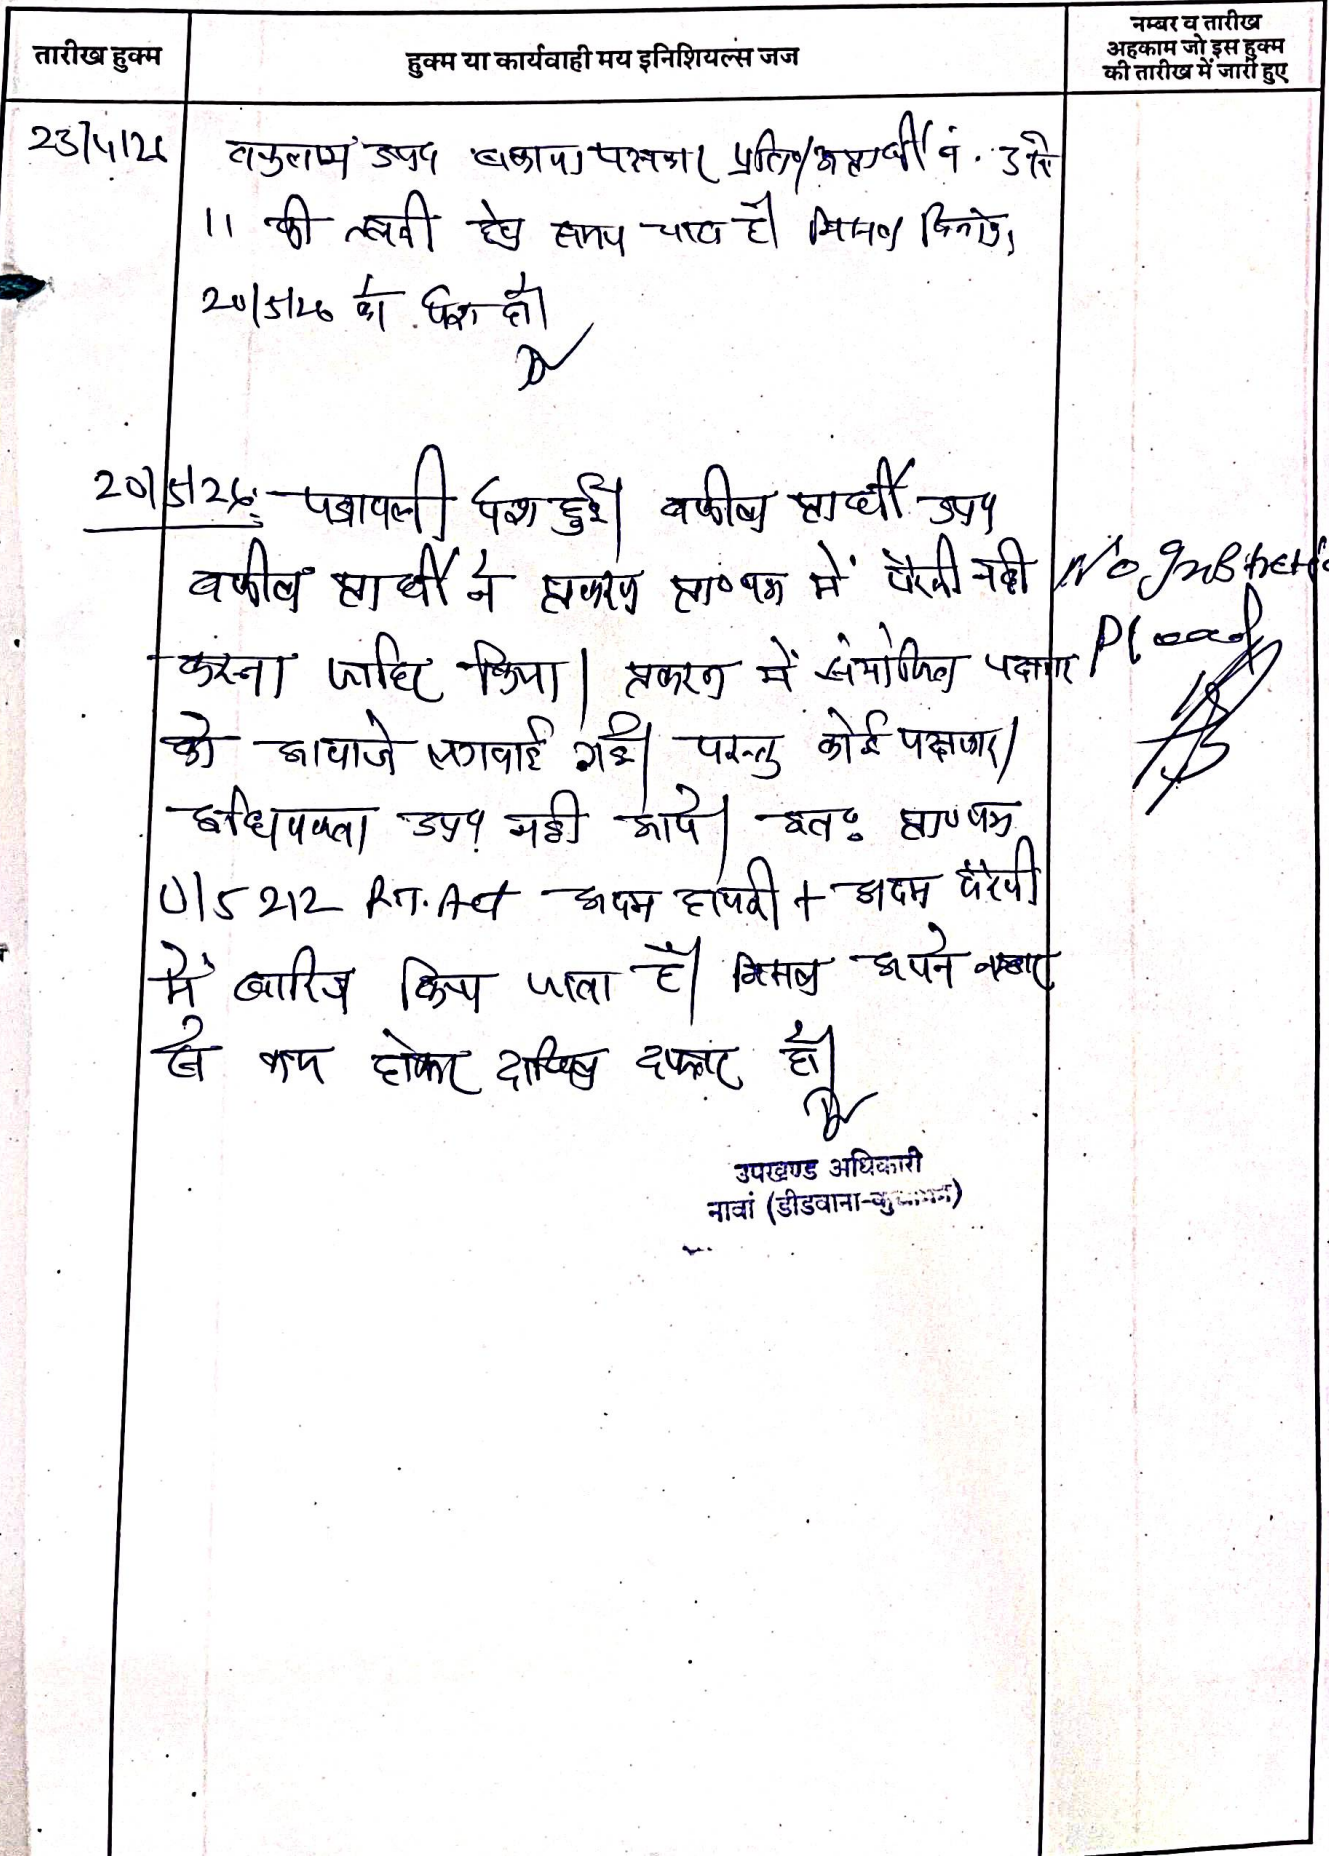 तारीख हुक्म
हुक्म या कार्यवाही मय इनिशियल्स जज
नम्बर व तारीख
अहकाम जो इस हुक्म
की तारीख में जारी हुए
23/4/26 वकुलाय उप० बकाया पक्षकार प्रति०/अप्रार्थी नं. 3 से
11 की तलबी हेतु समय चाहा है। मिसल दिनांक
20/5/26 को पेश हो।
20/5/26:- पत्रावली पेश हुई। वकील प्रार्थी उप०
वकील प्रार्थी ने प्रकरण प्रा०पत्र में पैरवी नही
करना जाहिर किया। प्रकरण में संयोजित पक्षकार
को आवाजे लगवाई गई। परन्तु कोई पक्षकार/
अधिवक्ता उप० नही आये। अतः प्रा०पत्र
U/S 212 R.T. Act अदम हाजरी + अदम पैरवी
में खारिज किया जाता है। मिसल अपने नम्बर
से कम होकर दाखिल दफ्तर हो।
No Instructi
Plead
उपखण्ड अधिकारी
नावां (डीडवाना-कुचामन)